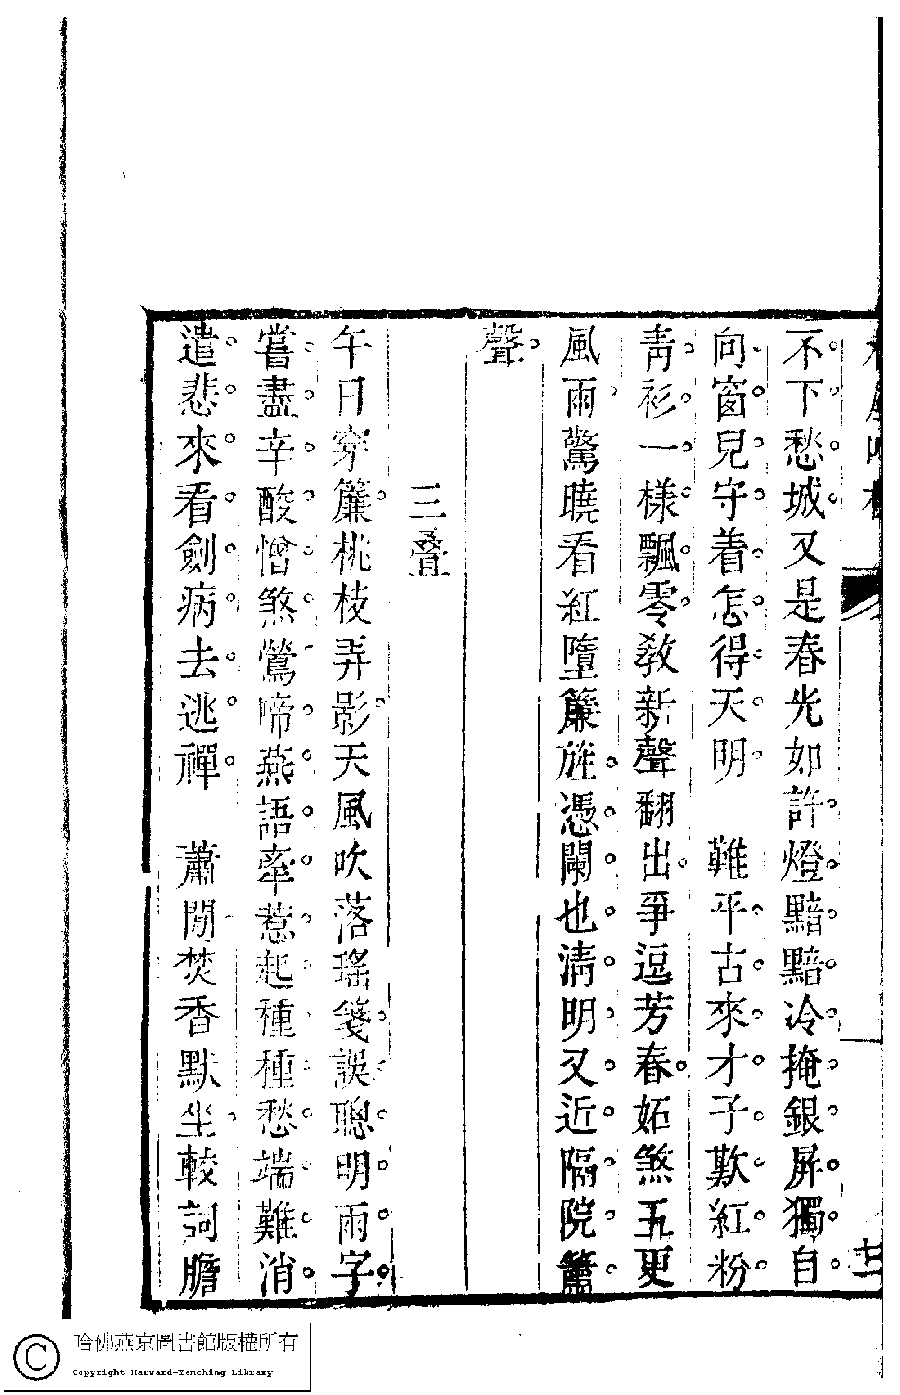 不下愁城又是春光如許燈黯黯冷掩銀屏獨自
向窗兒守着怎得天明　難平古來才子歎紅粉
靑衫一樣飄零敎新聲翻出爭逗芳春妬煞五更
風雨驚曉看紅墮簾旌憑闌也淸明又近隔院簫
聲
三叠
午日穿簾桃枝弄影天風吹落瑤箋誤聰明兩字
嘗盡辛酸憎煞鶯啼燕語牽惹起種種愁端難消
遣悲來看劍病去逃禪　蕭閒焚香默坐較詞膽
哈佛燕京圖書館版權所有
Copyright Harvard-Yenching Library